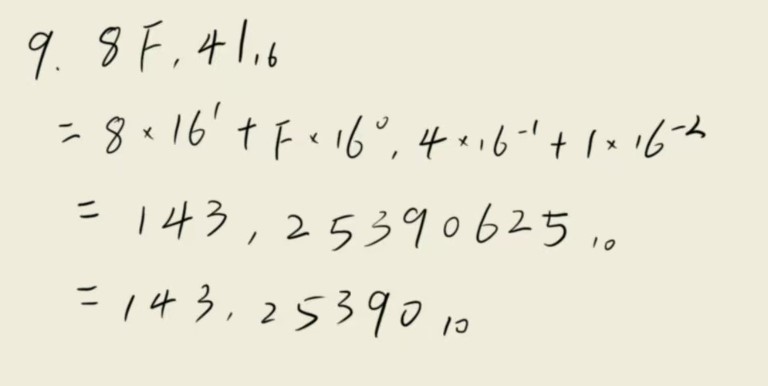 9. 8F.41₁₆
= 8 × 16¹ + F × 16⁰. 4 × 16⁻¹ + 1 × 16⁻²
= 143.25390625₁₀
= 143.25390₁₀